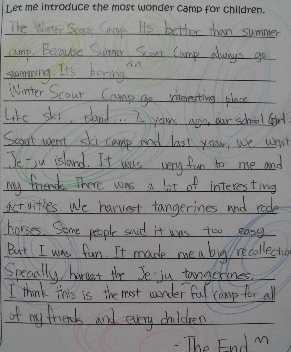 Let me introduce the most wonder camp for children.
The Winter Scout Camp. Its better than summer
camp. Because Summer Scout Camp always go
swimming. Its boring ^^
Winter Scout Camp go interesting place
Like ski, island... 2 years ago, our school Girl
Scout went ski camp and last year, we went
Je-ju island. It was very fun to me and
my friends. There was a lot of interesting
activities. We harvest tangerines and rode
horses. Some people said it was too easy
But I was fun. It made me a big recollection
Specially, harvest the Je-ju tangerines.
I think this is the most wonderful camp for all
of my friends and every children
- The End ^^